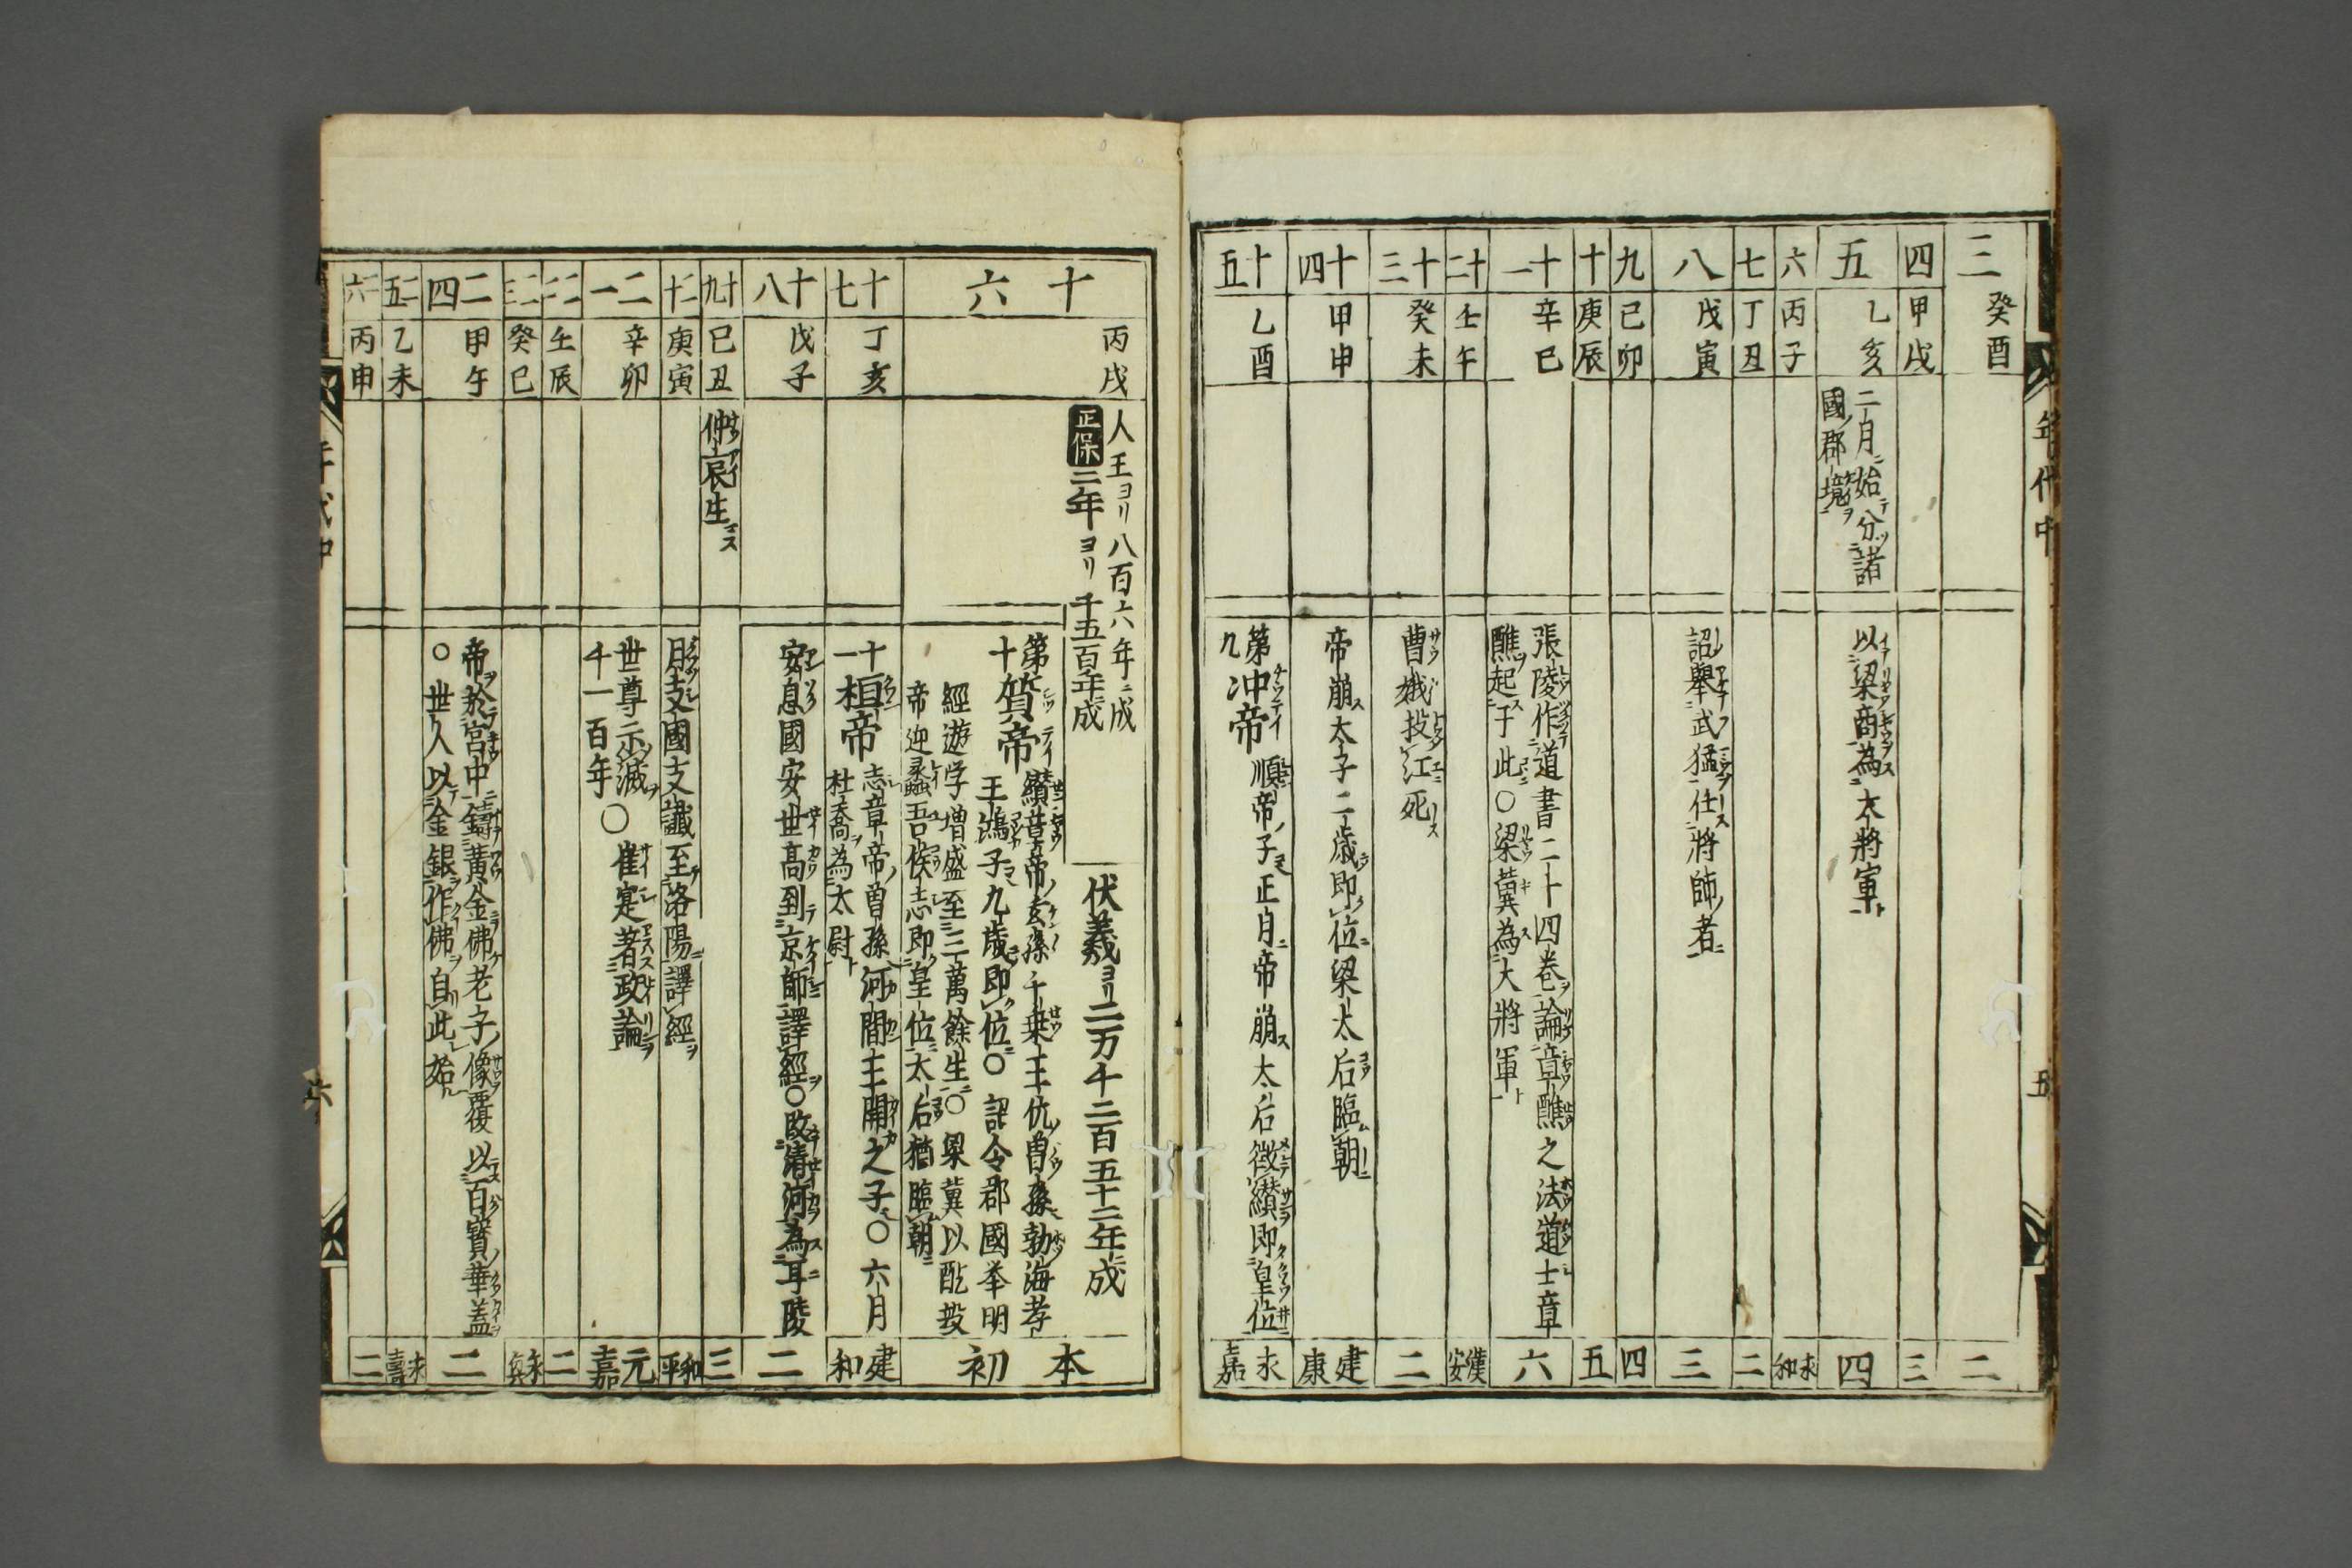 年代中
五
三
癸酉
二
四
甲戌
三
五
乙亥
二月始分諸
國郡境
以梁商為大將軍
四
六
丙子
永和
七
丁丑
二
八
戊寅
詔舉武猛仕將師者
三
九
己卯
四
十
庚辰
五
十一
辛巳
張陵作道書二十四卷論章醮之法道士章
醮起于此○梁冀為大將軍
六
十二
壬午
漢安
十三
癸未
曹娥投江死
二
十四
甲申
帝崩太子二歲即位梁太后臨朝
建康
十五
乙酉
第九
冲帝
順帝ノ子正月帝崩太后徵纘即皇位
永嘉
十六
丙戌
人王ヨリ八百六年ニ成
正保三年ヨリ千五百年成
伏羲ヨリ二万千二百五十二年成
第十
質帝
纘章帝ノ玄孫千乗王伉曽孫勃海孝
王鴻子九歲即位○詔令郡國舉明
經遊学增盛至三萬餘生○梁冀以酖殺
帝迎蠡吾侯志即皇位太后猶臨朝
本初
十七
丁亥
十一
桓帝
志章帝ノ曽孫河間王開之子○六月
杜喬為太尉
建和
十八
戊子
安息國安世高到京師譯經○改清河為甘陵
二
十九
己丑
仲哀生
三
二十
庚寅
月支國支讖至洛陽譯經
和平
二一
辛卯
世尊示滅
千一百年
○崔寔著政論
元嘉
二二
壬辰
二
二三
癸巳
永興
二四
甲午
帝於宮中鑄黃金佛老子像覆以百寶華盖
○世人以金銀作佛自此始
二
二五
乙未
永壽
二六
丙申
二
年代中
六